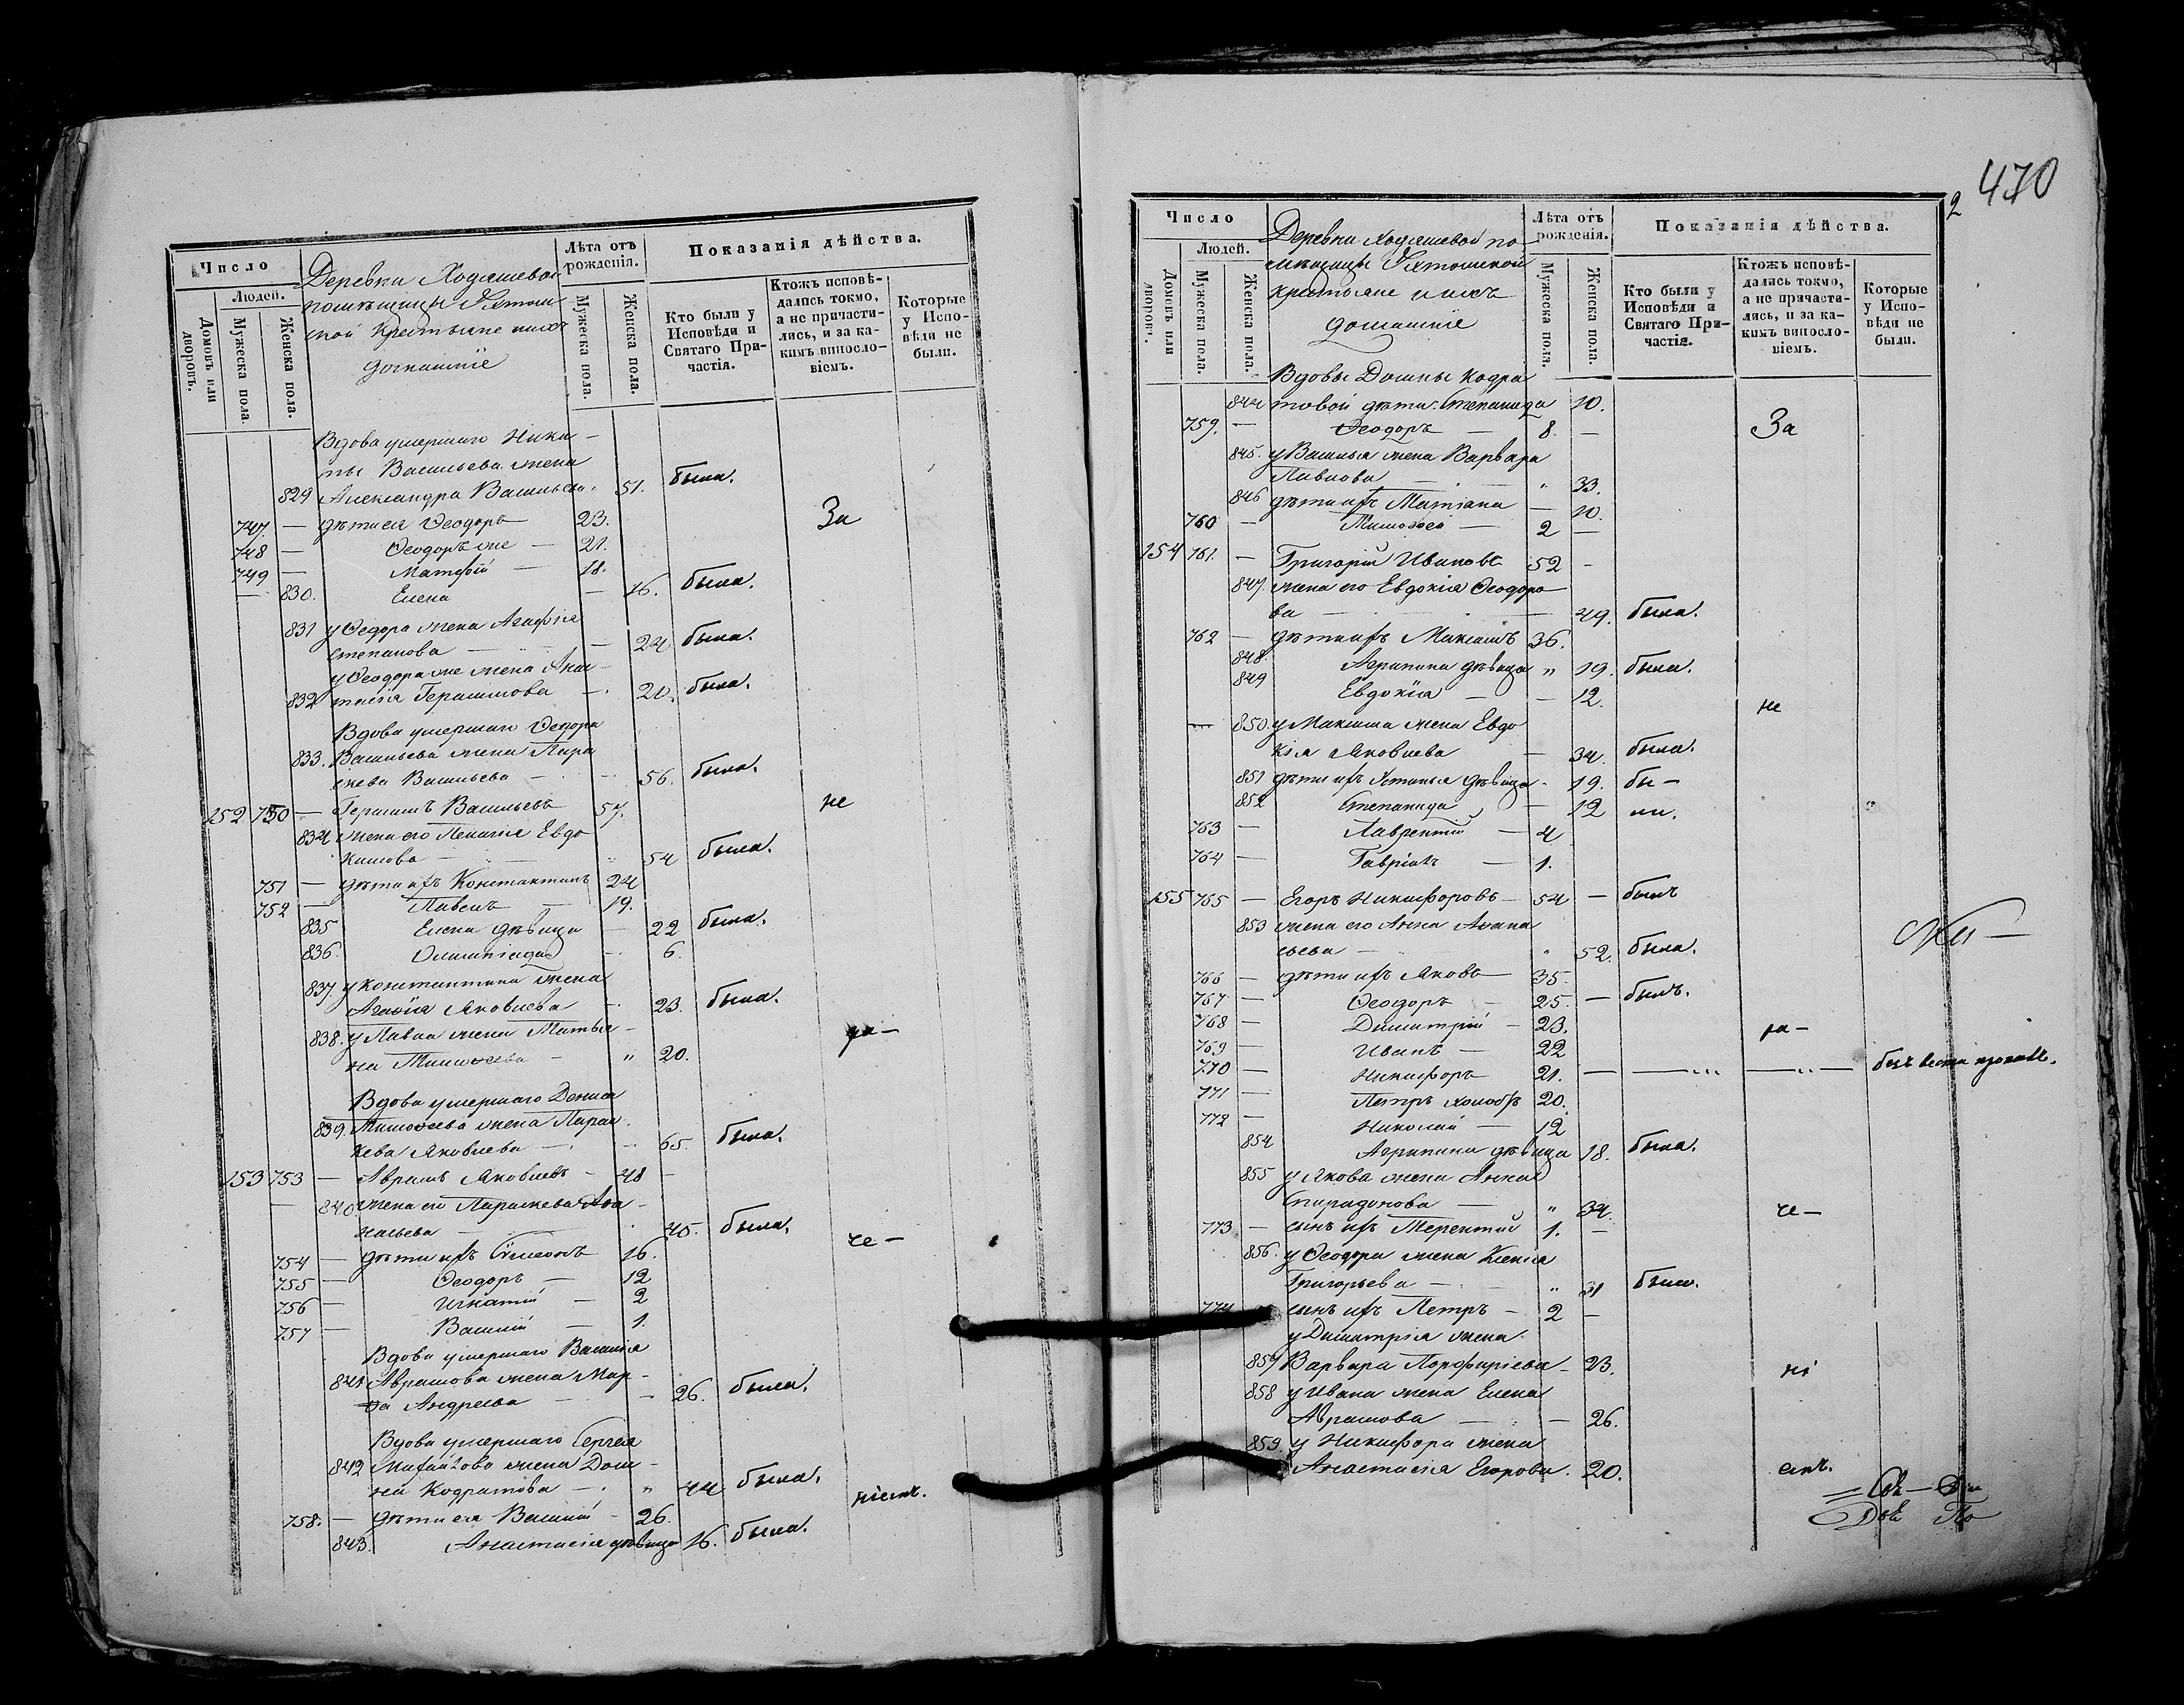 Число
Людей.
Домовъ или дворовъ.
Мужеска пола
Женска пола.
Деревни Ходяшевой
помѣщицы
ской крестьяне и ихъ
домашніе
Лѣта отъ рожденія.
Мужеска пола.
Женска пола.
Показанія дѣйства.
Кто были у Исповѣди и Святаго Причастія.
Ктожъ исповѣдались токмо, а не причастились, и за какимъ винословіемъ.
Которые у Исповѣди не были.
Вдова умершаго Ники-
ты Васильева жена
829 Александра Васильева. 51. была.
747. — дѣти ея Ѳеодоръ 23. За
748 — Ѳеодоръ же — 21.
749 — Матѳей — 18.
— 830. Елена — 16. была.
831 у Ѳедора жена Агафія
Степанова — 24 была.
у Ѳеодора же жена Анас-
832 тасія Герасимова — 20. была.
Вдова умершаго Ѳедора
833. Васильева жена Пара
скева Васильева — 56. была.
152 750 — Герасимъ Васильевъ 57. не
834 жена его Пелагія Евдо
кимова — 54 была.
751 — дѣти ихъ Константинъ 24
752 — Павелъ — 19.
835 Елена дѣвица — 22 была.
836. Олимпіада — 6.
837. у Константина жена
Агаѳія Яковлева — 23. была.
838. у Павла жена Татья-
на Тимоѳеева — " 20. ра-
Вдова умершаго Дениса
839. Тимоѳеева жена Парас
кева Яковлева — 65. была.
153 753 — Аврамъ Яковлевъ — 48 —
— 840 жена его Параскева Аѳа-
насьева — 45. была. че-
754 — дѣти ихъ Сѵмеонъ 16.
755 — Ѳеодоръ — 12
756 — Игнатій — 2
757 — Василій — 1.
Вдова умершаго Василія
841 Аврамова жена Мар-
ѳа Андреева — 26. была.
Вдова умершаго Сергея
842 Михайлова жена Дом-
на Кодратова — " 44 была.
758. — дѣти ея Василій — 26. ніемъ.
843. Анастасія дѣвица 16. была.
470
2
Число
Людей.
Домовъ или дворовъ.
Мужеска пола.
Женска пола.
Деревни Ходяшевой по-
мѣщицы
крестьяне и ихъ
домашніе
Лѣта отъ рожденія.
Мужеска пола.
Женска пола.
Показанія дѣйства.
Кто были у Исповѣди и Святаго Причастія.
Ктожъ исповѣдались токмо, а не причастились, и за какимъ винословіемъ.
Которые у Исповѣди не были.
Вдовы Домны Кодра
844 товой дѣти: Степанида 10.
759. — Ѳеодоръ — 8. — За
845. у Василья жена Варвара
Павлова — " 33.
846 дѣти ихъ Татіана — 10.
760 — Тимоѳей — 2 —
154 761. — Григорій Ивановъ 52 -
847. жена его Евдокія Ѳеодоро
ва — 49. была.
762 — дѣти ихъ Максимъ 36.
848. Агрипина дѣвица " 19. была.
849 Евдокія — 12. не
850 у Максима жена Евдо
кія Яковлева — 34. была.
851 дѣти ихъ Устинья дѣвица - 19. бы-
852 Степанида — 12 ли.
763 — Лаврентій — 4
764 — Гавріилъ — 1.
155 765 — Егоръ Никифоровъ — 54 — былъ
853 жена его Анна Аѳана
сьева — " 52. была.
766 — дѣти ихъ Яковъ — 35.
767 — Ѳеодоръ — 25. — былъ.
768 — Димитрій — 23. ра-
769 — Иванъ — 22
770 — Никифоръ — 21. — безъ вести пропалъ.
771 — Петръ холостъ 20.
772 — Николай — 12
854 Агрипина дѣвица 18. была.
855 у Якова жена Анна
Спиридонова — " 34. че-
773 — сынъ ихъ Терентій 1. —
856. у Ѳеодора жена Ксенія
Григорьева — " 31 была.
774 сынъ ихъ Петръ — 2 —
у Димитрія жена
857 Варвара Порфиріева — 23. ні
858 у Ивана жена Елена
Аврамова — — 26.
859. у Никифора жена
Анастасія Егорова. 20. емъ.